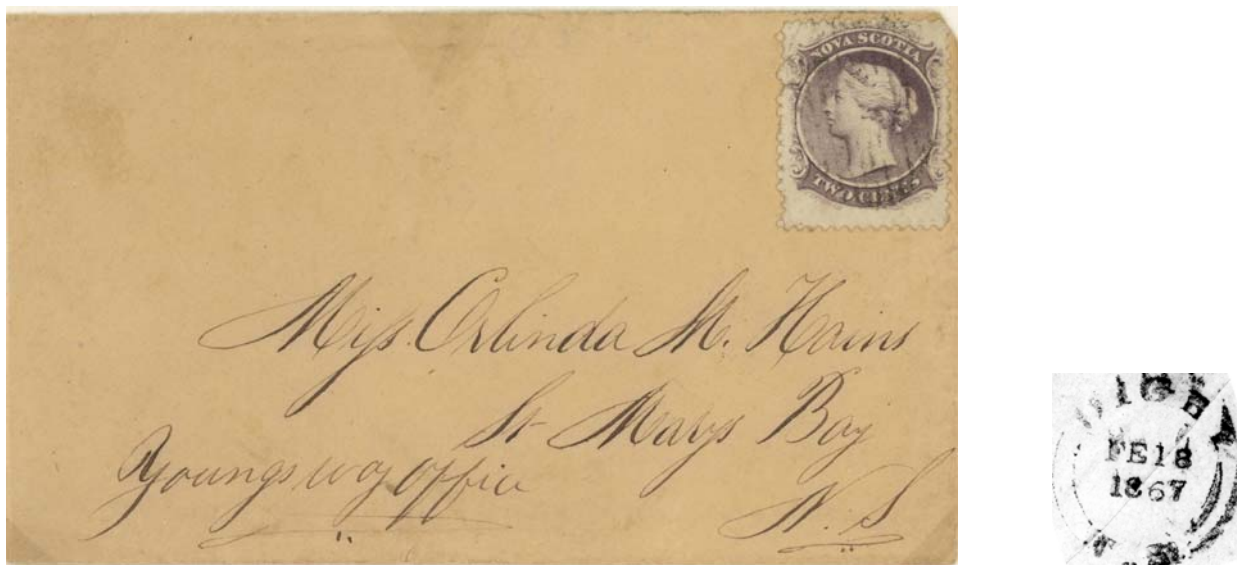 NOVA SCOTIA
TWO CENTS
Miss Orlinda M. Hains
St Marys Bay
Youngs way office
N. S
DIGBY
FE 18
1867
N. S.